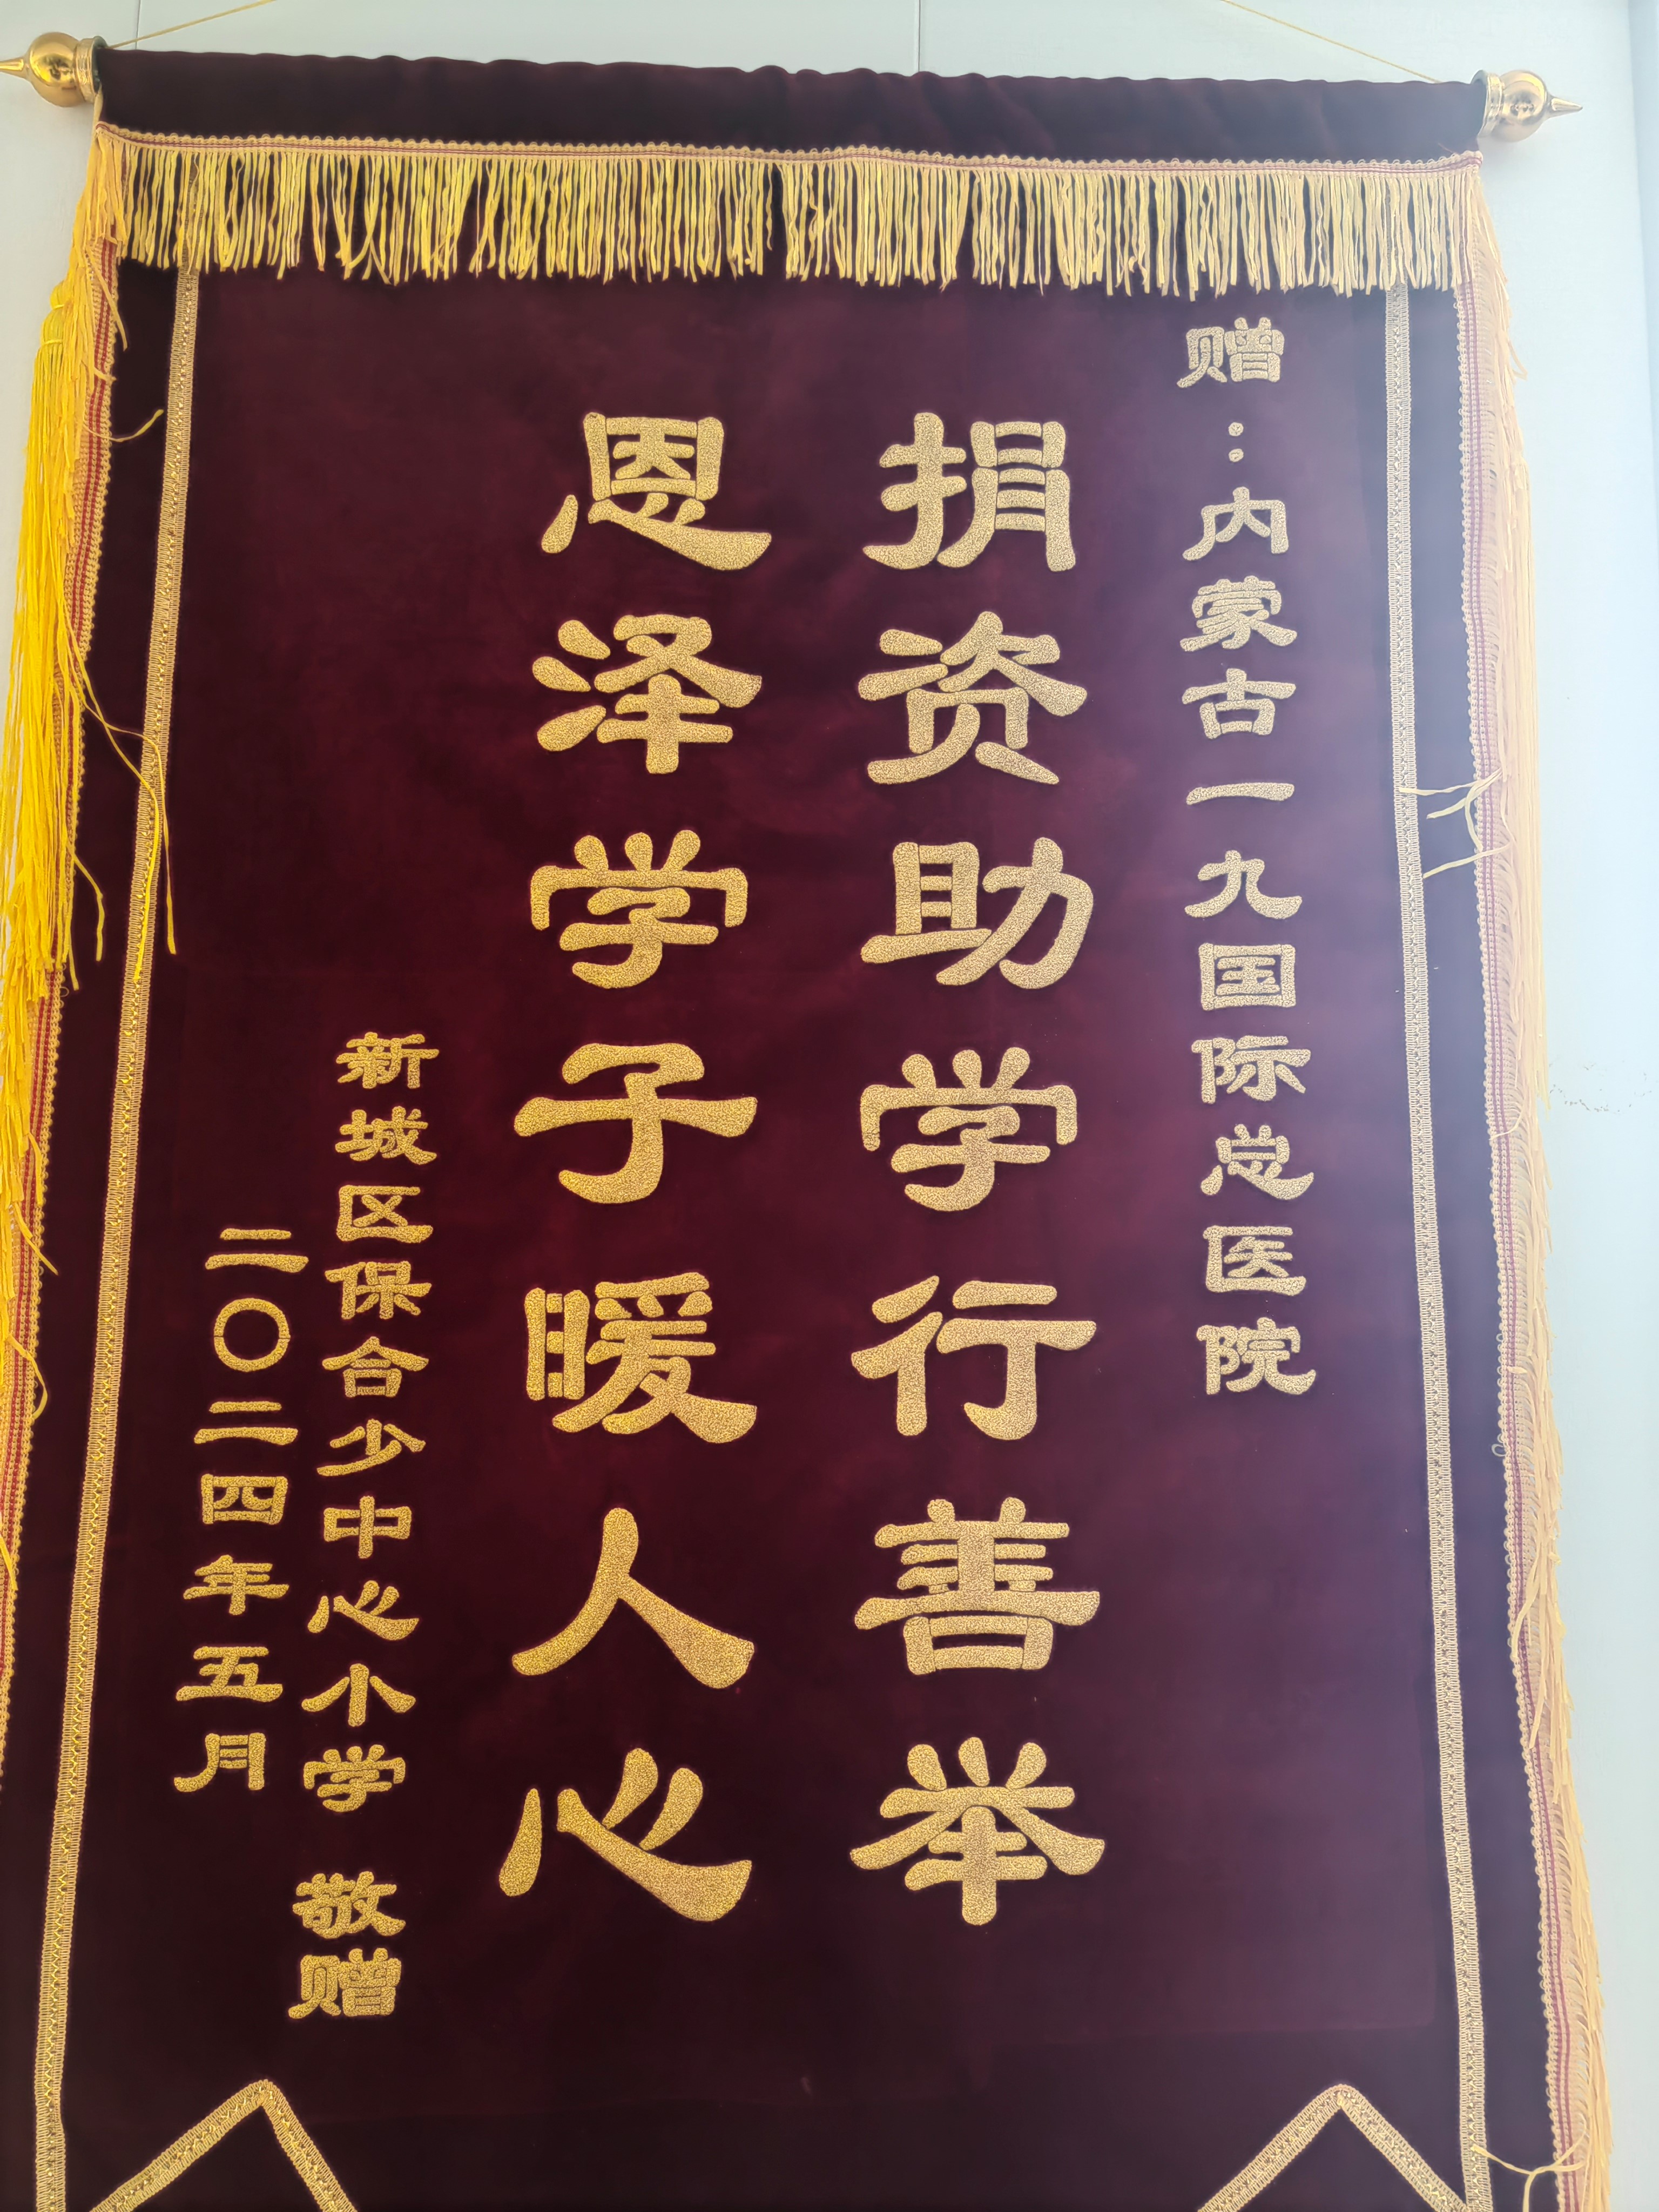 赠：内蒙古一九国际总医院
捐资助学行善举
恩泽学子暖人心
新城区保合少中心小学 敬赠
二〇二四年五月